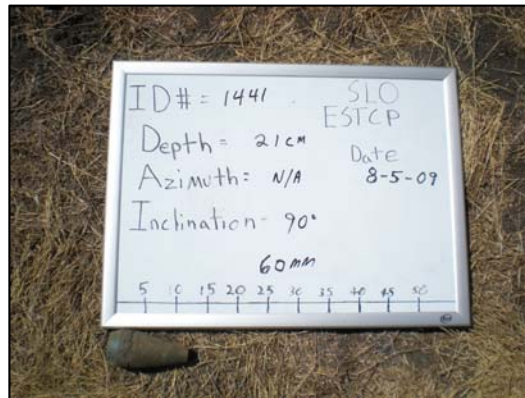 ID# = 1441
SLO
ESTCP
Depth = 21cm
Date
8-5-09
Azimuth: N/A
Inclination- 90°
60mm
5 10 15 20 25 30 35 40 45 50